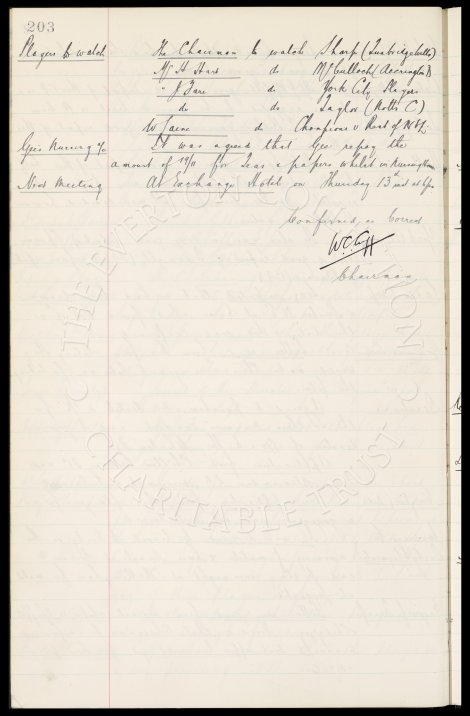 203
Players to watch The Chairman to watch Sharp (Tunbridge Wells)
Mr H Hart do McCulloch (Accrington)
" J. do York City Players
do do Taylor (Notts C)
W do Champions v Rest of
Gee's Nursing It was agreed that Gee repay the
amount of 19/11 for teas & papers whilst in Nursing Home
Next Meeting At Exchange Hotel on Thursday 13th inst at 6pm
Confirmed as Correct
W.C. Cuff
Chairman
© THE EVERTON COLLECTION
CHARITABLE TRUST